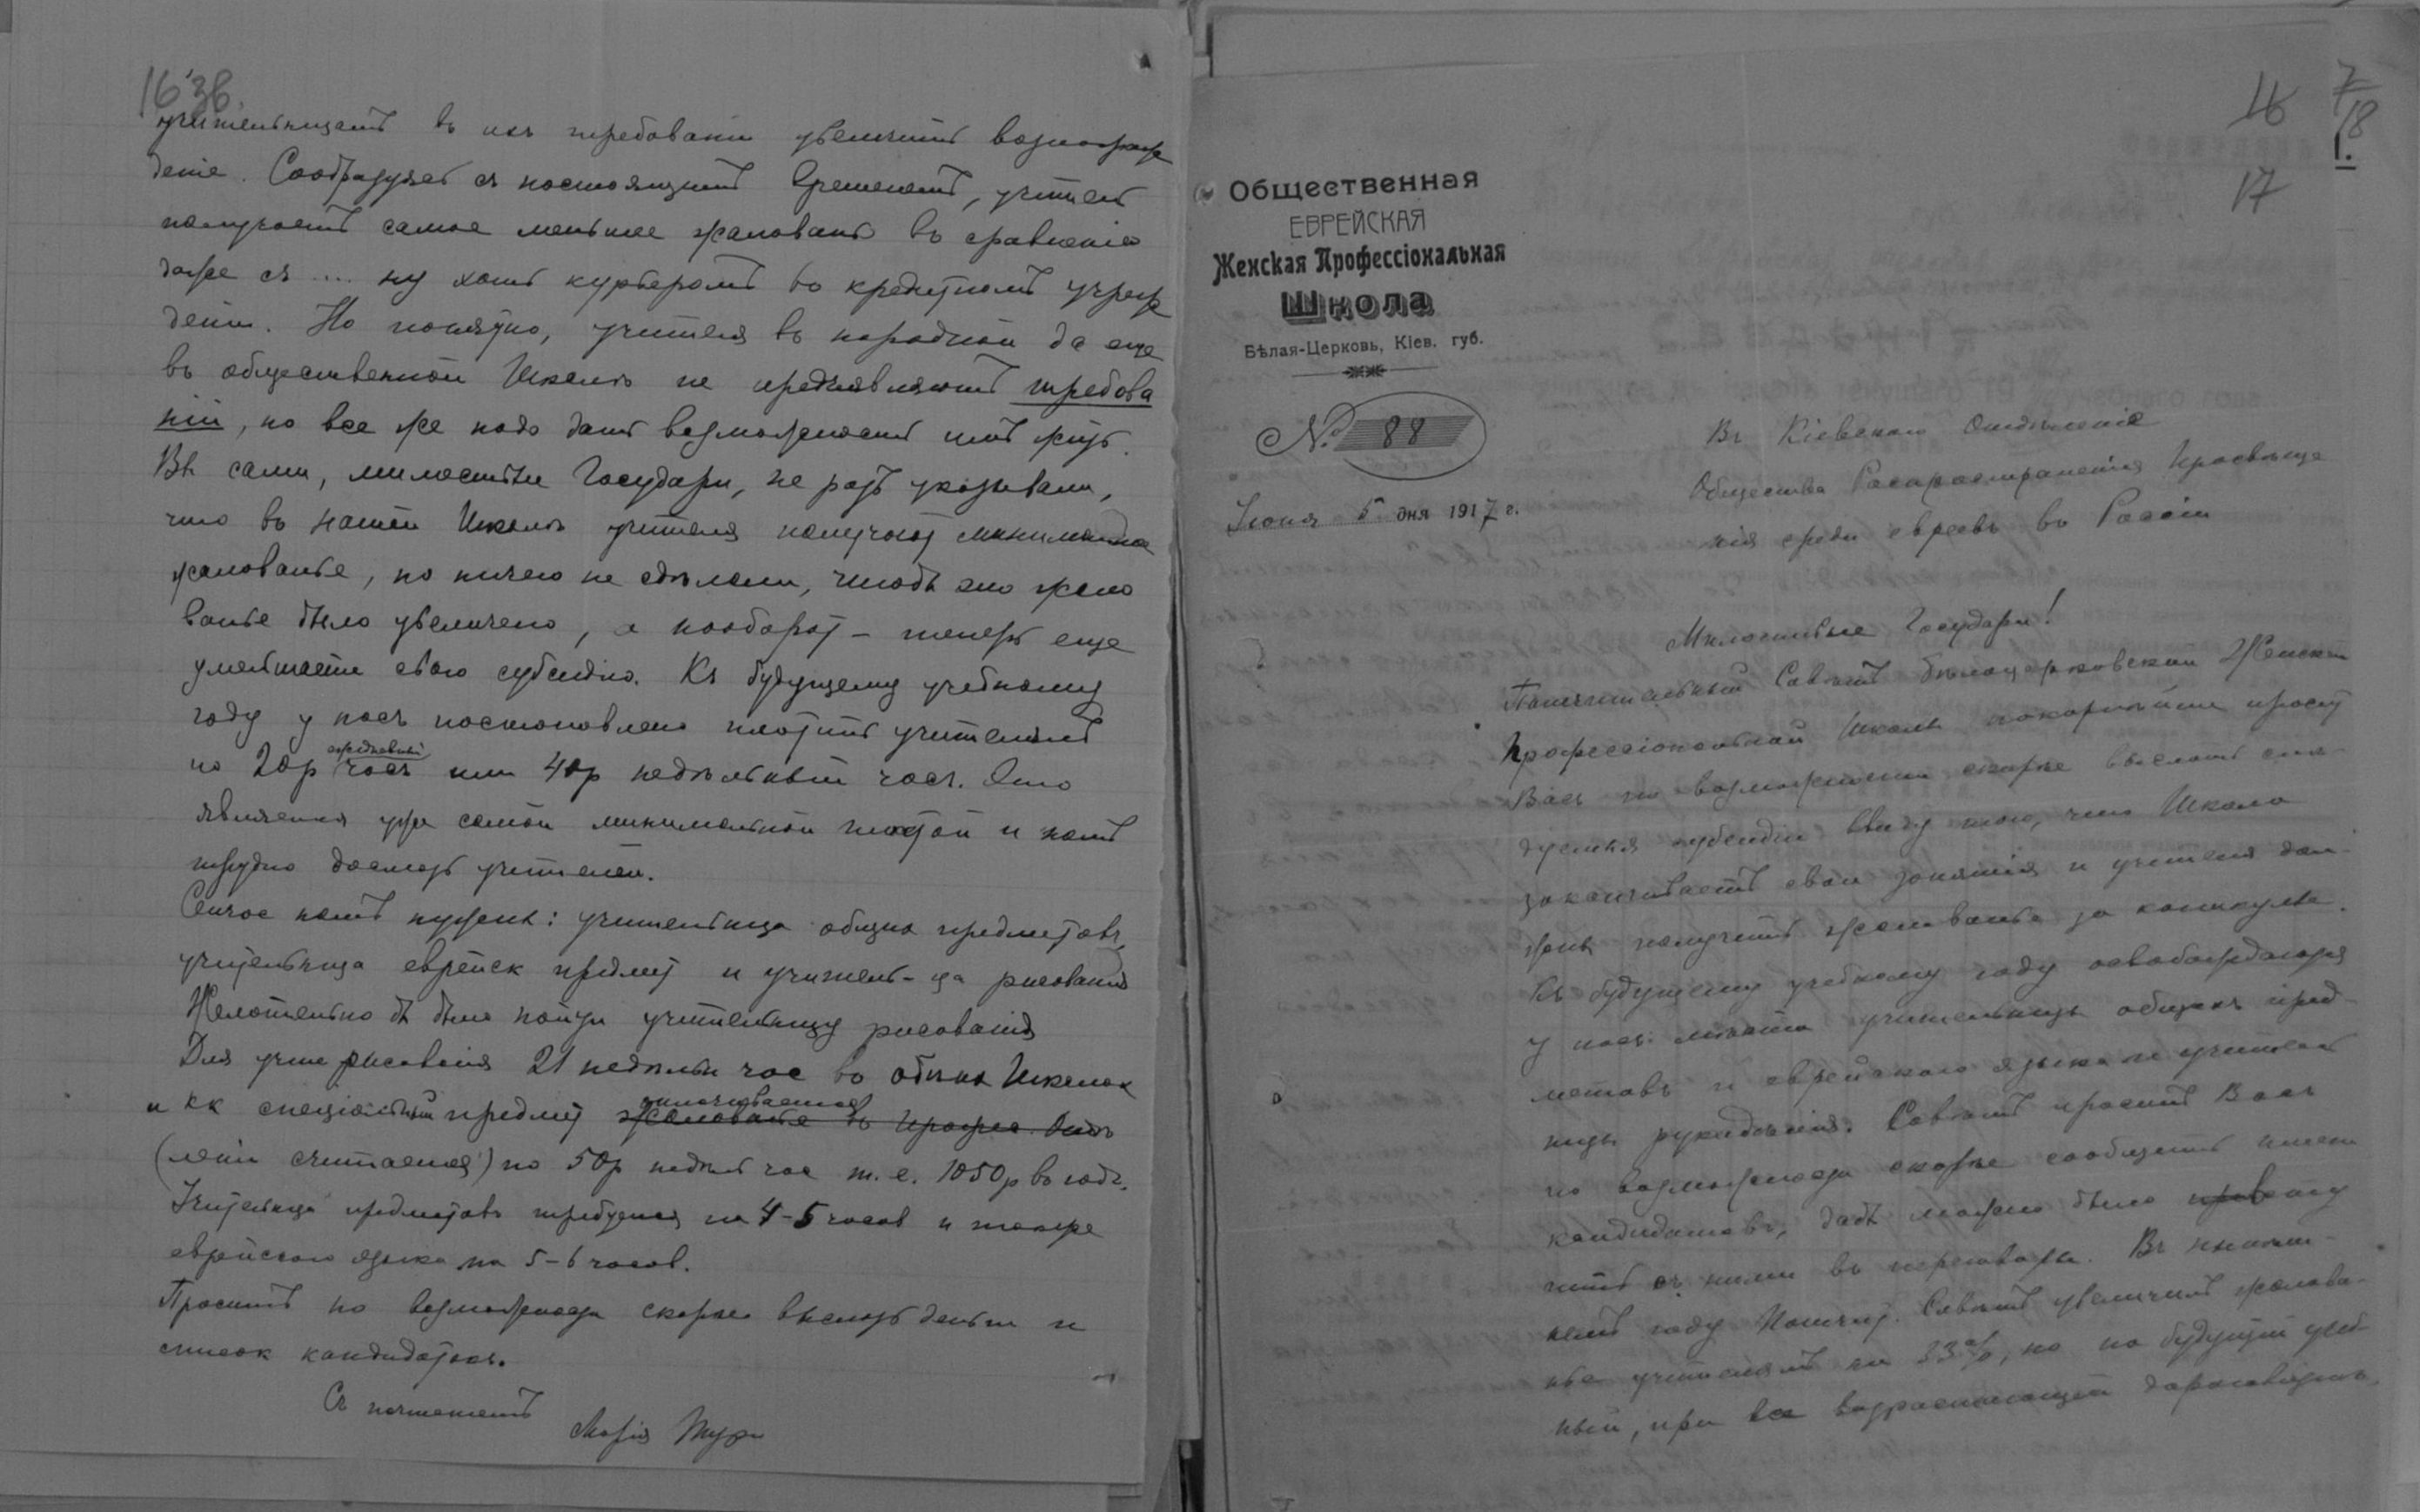 16 зв.
учительницамъ въ ихъ требованіи увеличить вознаграж
деніе. Сообразуясь съ настоящимъ временемъ, учитель
получаетъ самое меньшее жалованье въ сравненіи
даже съ ... ну хоть курьеромъ въ кредитномъ учреж
деніи. Но понятно, учителя въ народной да еще
въ общественной Школѣ не предъявляютъ требова
ній, но все же надо дать возможность имъ жить.
Вы сами, милостивые Государи, не разъ указывали,
что въ нашей Школѣ учителя получают минимальное
жалованье, но ничего не сдѣлали, чтобы это жало
ванье было увеличено, а наоборот – теперь еще
уменьшаете свою субсидію. Къ будущему учебному
году у насъ постановлено платить учителямъ
по 20р ежедневный часъ или 40р недѣльный часъ. Это
является уже самой минимальной платой и намъ
трудно достать учителей.
Сейчас намъ нужны: учительница общих предметовъ,
учительница еврейск предмет и учитель-ца рисованія
Желательно бы было найти учительницу рисованія
Для учит рисованія 21 недѣльн час во обѣих Школах
и как спеціальный предмет оплачивается жалованье
(лѣто считается) по 50р недѣл час т. е. 1050р въ годъ.
Учительница предметовъ требуется на 4-5 часов и также
еврейского языка на 5-6 часов.
Просимъ по возможности скорѣе выслать деньги и
список кандидатокъ.
Съ почтеніемъ
Марія
16
17
7
18
1.
Общественная
ЕВРЕЙСКАЯ
Женская Профессіональная
Школа
Бѣлая-Церковь, Кіев. губ.
№ 88
Іюня 5 дня 1917 г.
Въ Кіевское Отдѣленіе
Общества Распространенія Просвѣще
нія среди евреевъ въ Россіи
Милостивые Государи!
Попечительный Совѣтъ бѣлоцерковской Женской
Профессіональной Школы покорнѣйше просит
Васъ по возможности скорѣе выслать слѣ-
дуемыя субсидіи ввиду того, что Школа
заканчиваетъ свои занятія и учителя дол-
жны получить жалованье за каникулы.
Къ будущему учебному году освобождаются
у насъ: мѣста учительницъ общихъ пред-
метовъ и еврейскаго языка и учитель
ницы рукодѣлія. Совѣтъ проситъ Васъ
по возможности скорѣе сообщить имена
кандидатовъ, дабы можно было всту
пить съ ними въ переговоры. Въ нынѣш-
немъ году Попечит. Совѣтъ увеличилъ жалова-
нье учителямъ на 33%, но на будущій учеб-
ный, при все возрастающей дороговизнѣ,